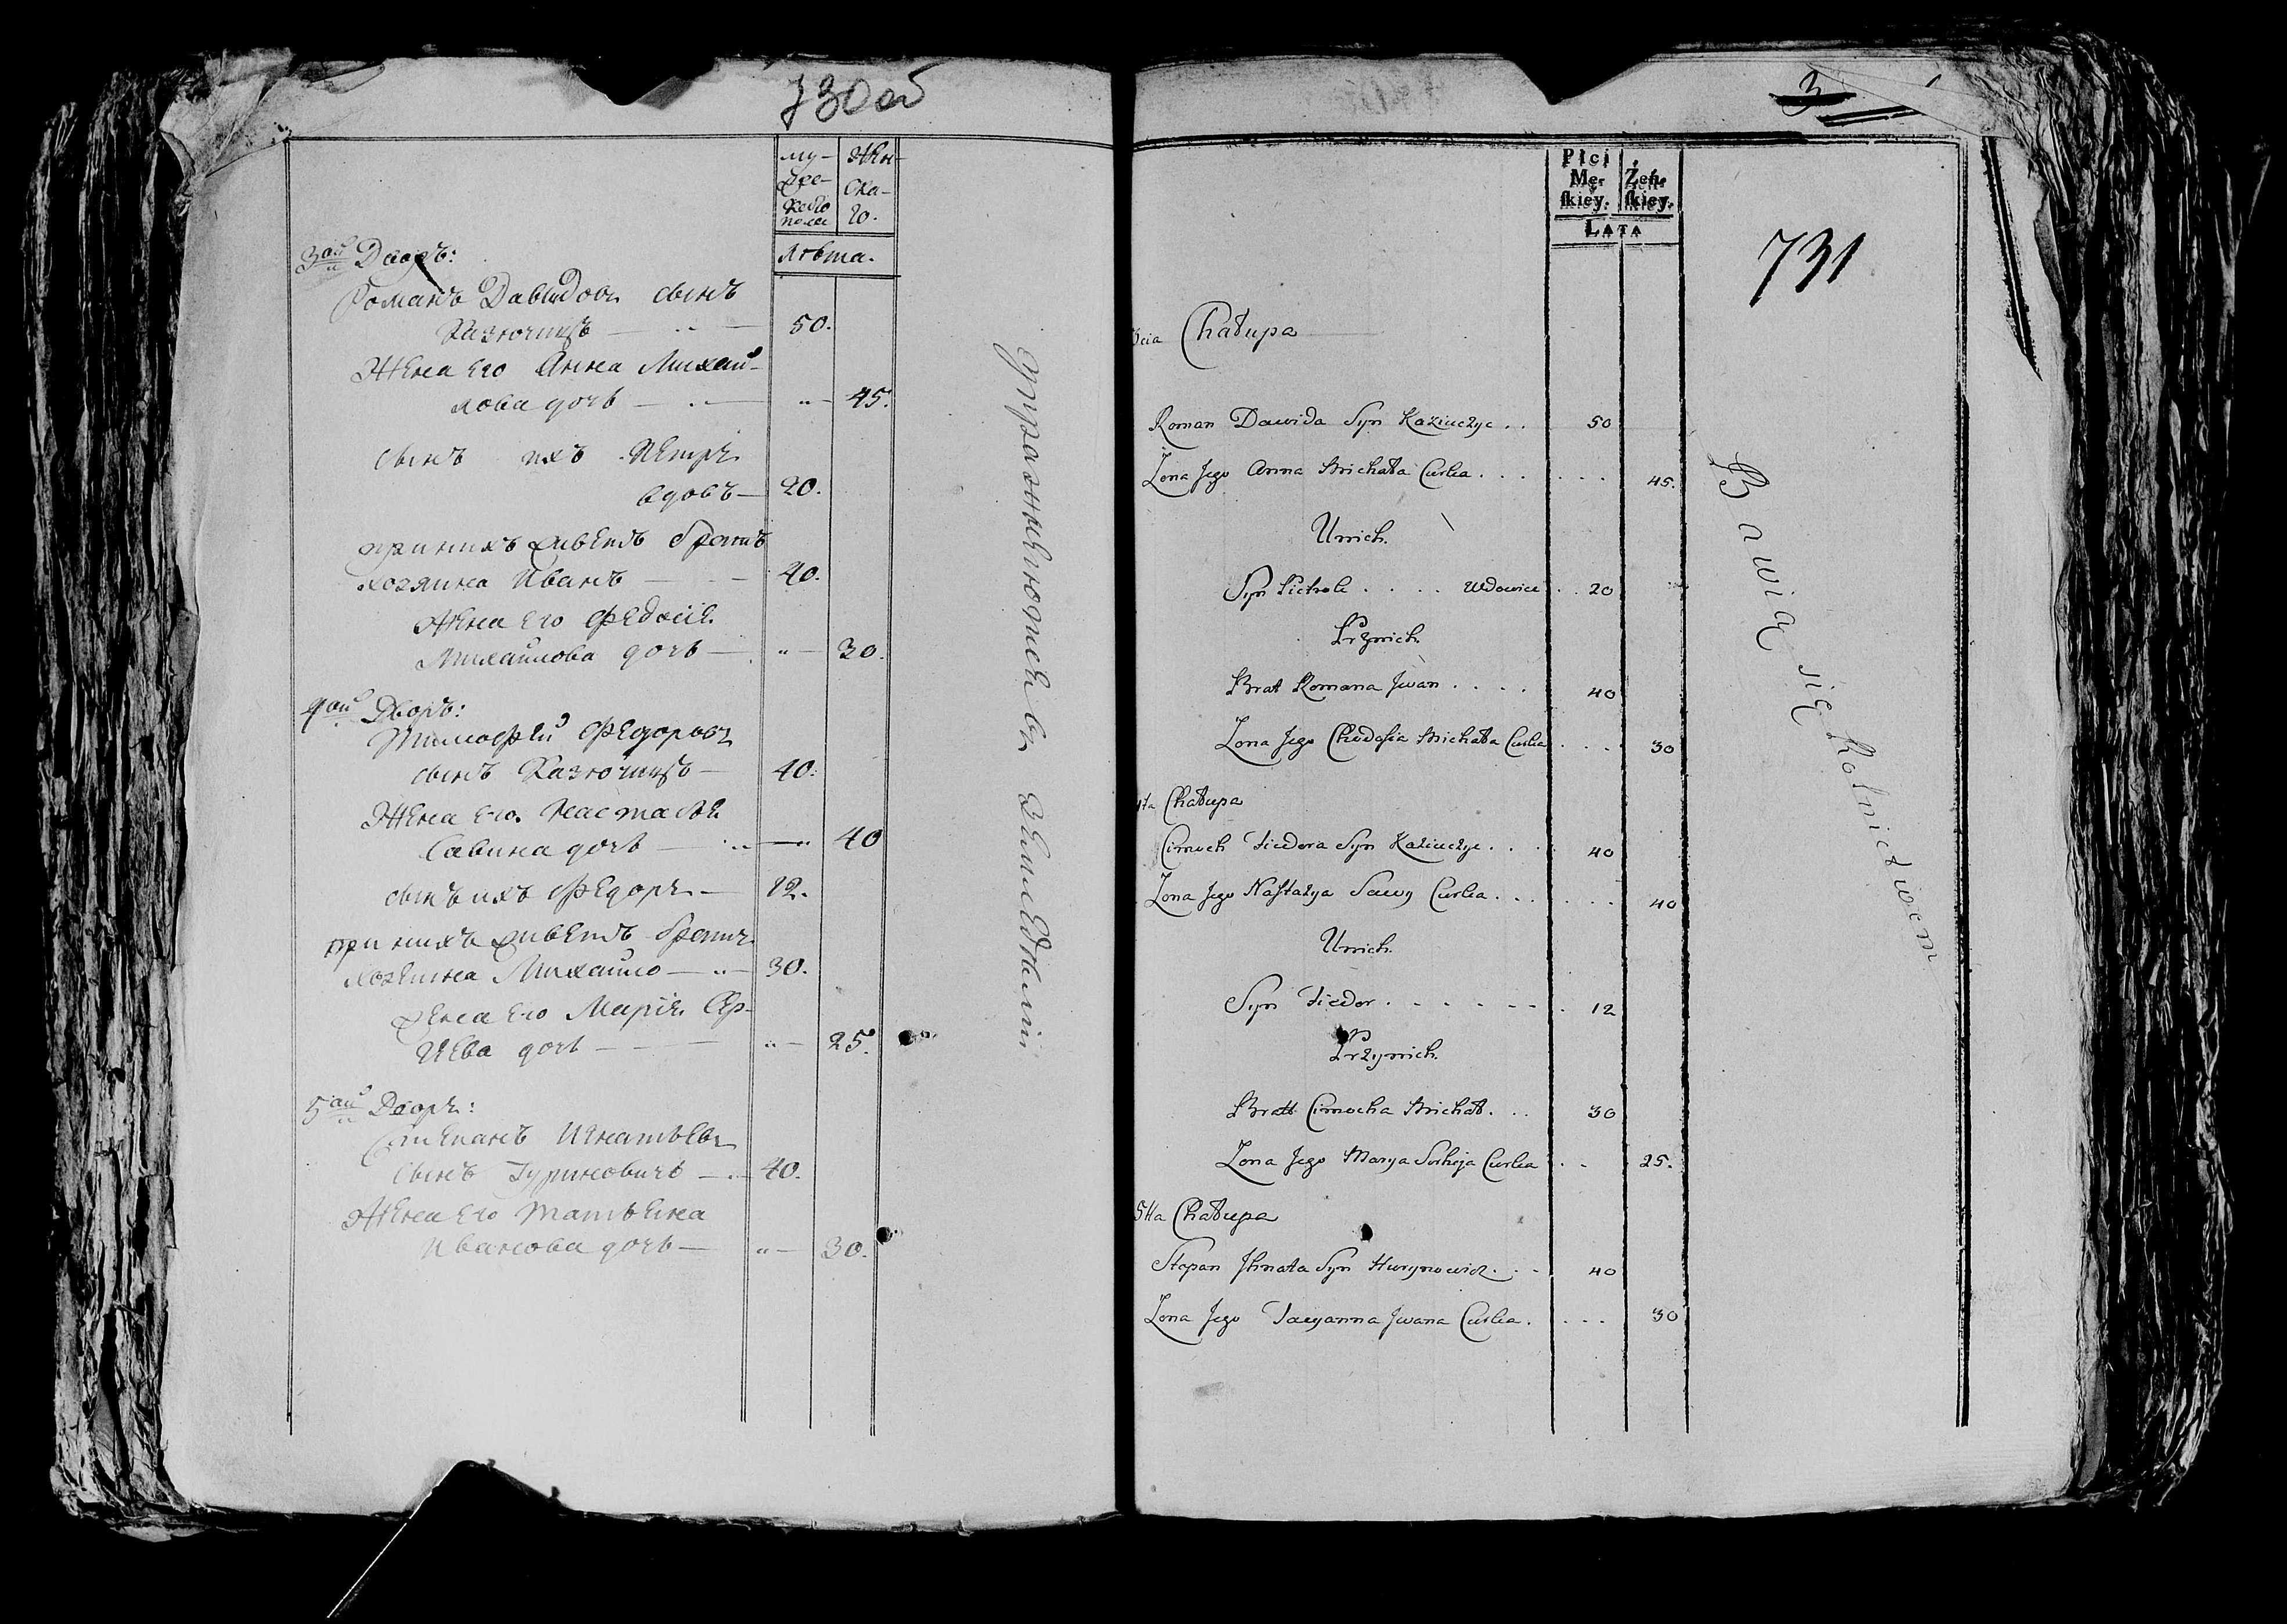 730 об
му-
жес-
каго
пола
Жен-
ска-
го.
Лѣта.
3ой Дворъ:
Романъ Давыдовъ сынъ
Казючицъ — 50.
Жена его Анна Михай-
лова дочь — 45.
сынъ ихъ Петръ
вдовъ — 20.
при нихъ живетъ братъ
хозяина Иванъ — 40.
Жена его Федосія
Михайлова дочь — 30.
4ой Дворъ:
Тимофей Федоровъ
сынъ Казючицъ — 40.
Жена его Настасья
Савина дочь — 40
сынъ ихъ Федоръ — 12.
при нихъ живетъ братъ
хозяина Михайло — 30.
жена его Марія Сер-
геева дочь — 25.
5ой Дворъ:
Степанъ Игнатьевъ
сынъ Гуриновичъ — 40.
Жена его Татьяна
Иванова дочь — 30.
упражняются въ земледѣліи
3
731
Płci
Mę-
ſkiey.
Żeń-
ſkiey.
LATA
3cia Chałupa
Roman Dawida Syn Kaziuczyc . . 50
Zona Jego Anna Michała Curka . . . 45.
U nich.
Syn Pietrok . . . . Wdowiec . . 20
Przy nich.
Brat Romana Jwan . . . . 40
Zona Jego Chodosia Michała Curka . . . 30
4ta Chałupa
Cimoch Fiedora Syn Kaziuczyc . . . 40
Zona Jego Nastazya Sawy Curka . . . 40
U nich.
Syn Fiedor . . . . . . . 12
Przy nich.
Bratt Cimocha Michał . . . 30
Zona Jego Marya Serheja Curka . . 25.
5tta Chałupa
Stepan Jhnata Syn Hurynowicz . . . 40
Zona Jego Taćyanna Jwana Curka . . . . 30
Bawią się Rolnictwem